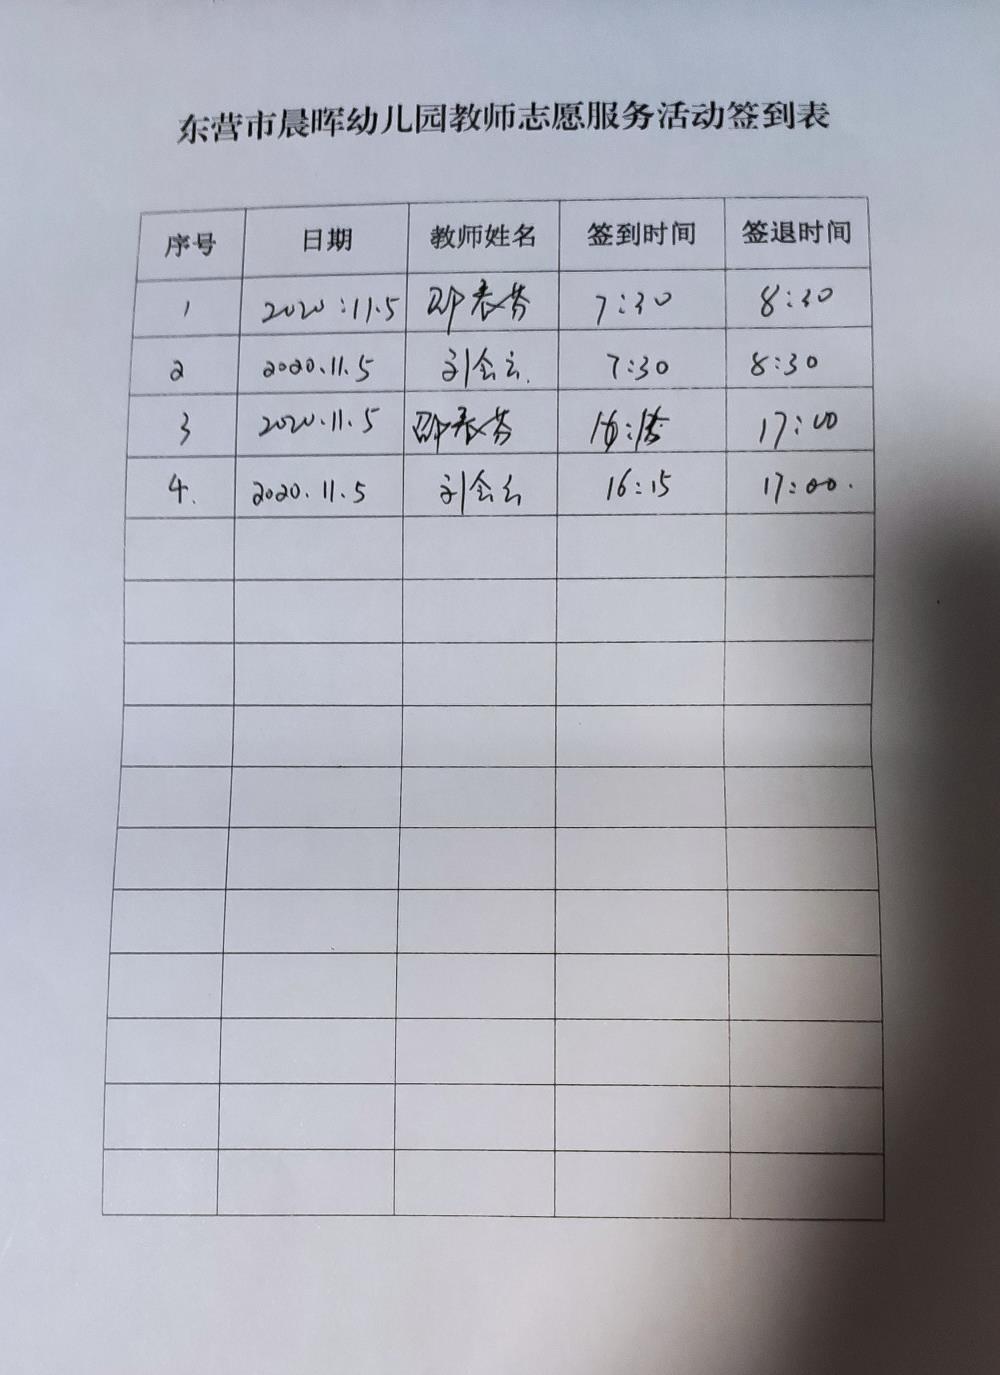 东营市晨晖幼儿园教师志愿服务活动签到表
序号 日期 教师姓名 签到时间 签退时间
1 2020:11.5 邵春芬 7:30 8:30
2 2020.11.5 刘会云. 7:30 8:30
3 2020.11.5 邵春芬 16:15 17:00
4. 2020.11.5 刘会云 16:15 17:00.